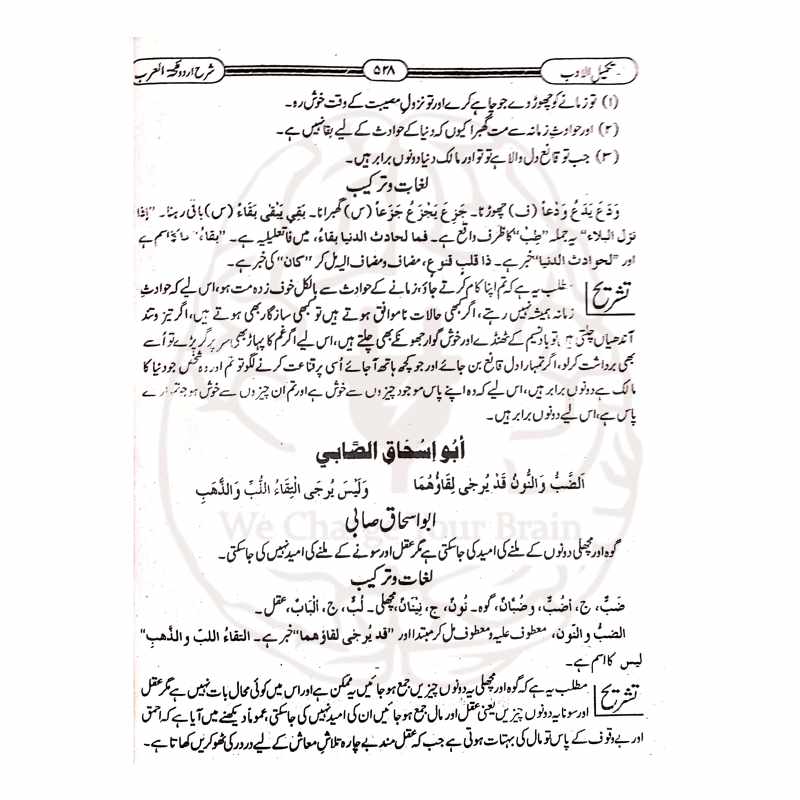 تکمیل الادب ۵۲۸ شرح اردو نفحۃ العرب
(۱) تو زمانے کو چھوڑ دے جو چاہے کرے اور تو نزولِ مصیبت کے وقت خوش رہ۔
(۲) اور حوادثِ زمانہ سے مت گھبرا کیوں کہ دنیا کے حوادث کے لیے بقا نہیں ہے۔
(۳) جب تو قانع دل والا ہے تو تو اور مالک دنیا دونوں برابر ہیں۔
لغات و ترکیب
وَدَعَ يَدَعُ وَدْعاً (ف) چھوڑنا۔ جَزِعَ يَجْزَعُ جَزَعاً (س) گھبرانا۔ بَقِيَ يَبْقٰى بَقَاءً (س) باقی رہنا۔ ”إذا
نزل البلاء“ یہ جملہ ”طِبْ“ کا ظرف واقع ہے۔ فما لحادث الدنيا بقاءُ، میں فا تعلیلیہ ہے۔ ”بقاءُ“ اسم ہے
اور ”لحوادث الدنيا“ خبر ہے۔ ذا قلبٍ قنوعٍ، مضاف و مضاف الیہ مل کر ”كان“ کی خبر ہے۔
تشریح مطلب یہ ہے کہ تم اپنا کام کرتے جاؤ، زمانے کے حوادث سے بالکل خوف زدہ مت ہو، اس لیے کہ حوادثِ
زمانہ ہمیشہ نہیں رہتے، اگر کبھی حالات ناموافق ہوتے ہیں تو کبھی سازگار بھی ہوتے ہیں، اگر تیز و تند
آندھیاں چلتی ہیں تو بادِ نسیم کے ٹھنڈے اور خوش گوار جھونکے بھی چلتے ہیں، اس لیے اگر غم کا پہاڑ بھی سر پر گر پڑے تو اُسے
بھی برداشت کرلو، اگر تمہارا دل قانع بن جائے اور جو کچھ ہاتھ آجائے اُسی پر قناعت کرنے لگو تو تم اور وہ شخص جو دنیا کا
مالک ہے دونوں برابر ہیں، اس لیے کہ وہ اپنے پاس موجود چیزوں سے خوش ہے اور تم ان چیزوں سے خوش ہو جو تمہارے
پاس ہے، اس لیے دونوں برابر ہیں۔
أبُو إسْحَاق الصَّابي
اَلضَّبُّ وَالنُّونُ قَدْ يُرجٰى لِقَاؤُهُمَا وَلَيْسَ يُرجَى الْتِقَاءُ اللُّبِّ وَالذَّهَبِ
ابو اسحاق صابی
گوہ اور مچھلی دونوں کے ملنے کی امید کی جاسکتی ہے مگر عقل اور سونے کے ملنے کی امید نہیں کی جاسکتی۔
لغات و ترکیب
ضَبٌّ، ج، أضُبٌّ، وضُبَّانٌ، گوہ۔ نُونٌ، ج، نِيْنَانٌ، مچھلی۔ لُبٌّ، ج، ألْبَابٌ، عقل۔
الضبُّ والنّون، معطوف علیہ و معطوف مل کر مبتدا اور ”قد يُرجٰى لقاؤهما“ خبر ہے۔ التقاءُ اللبّ والذّهبِ“
ليس کا اسم ہے۔
تشریح مطلب یہ ہے کہ گوہ اور مچھلی یہ دونوں چیزیں جمع ہو جائیں یہ ممکن ہے اور اس میں کوئی محال بات نہیں ہے مگر عقل
اور سونا یہ دونوں چیزیں یعنی عقل اور مال جمع ہو جائیں ان کی امید نہیں کی جاسکتی، عموماً دیکھنے میں آیا ہے کہ احمق
اور بے وقوف کے پاس تو مال کی بہتات ہوتی ہے جب کہ عقل مند بے چارہ تلاشِ معاش کے لیے در در کی ٹھوکریں کھاتا ہے۔
We Change Your Brain